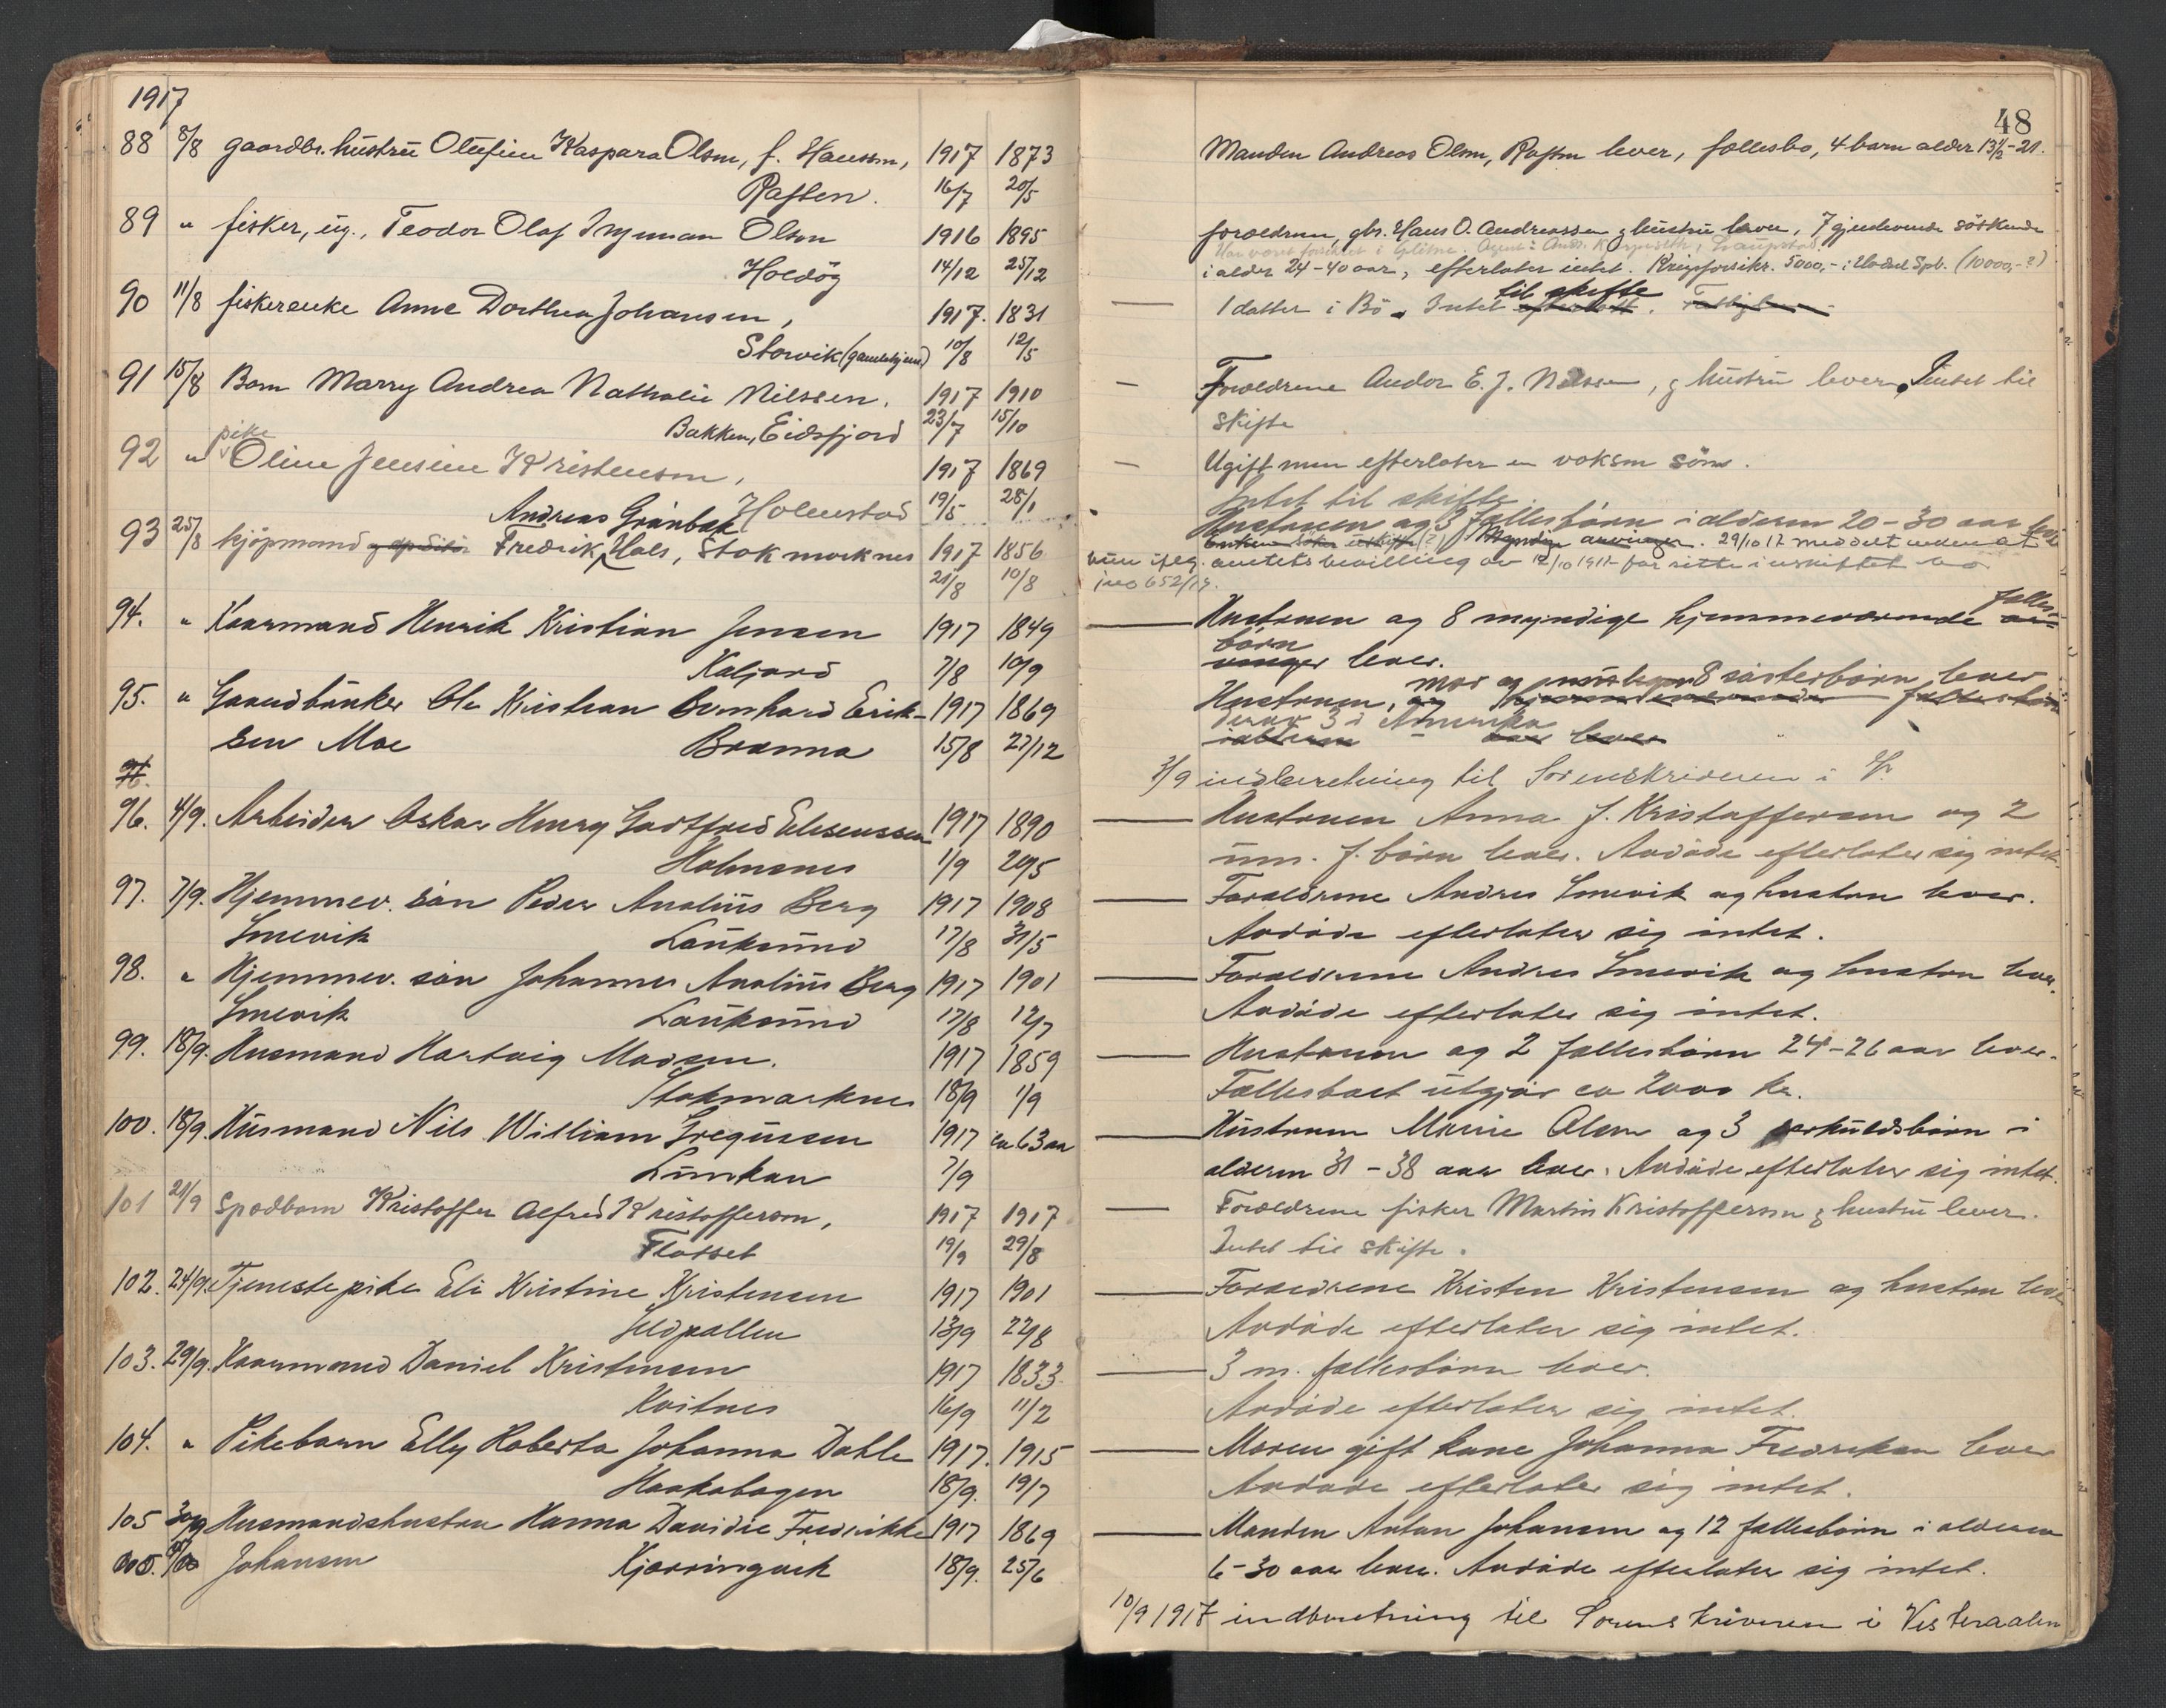 1917
48
88 8/8 gaardbr. hustru Olufine Kaspara Olsen, f. Hansen, 1917 1873 Manden Andreas Olsen, Raften lever, fællesbo, 4 barn alder 13½-21.
Raften. 16/7 20/5
89 " fisker, ug., Teodor Olaf Ingeman Olsen 1916 1895 forældrene, gbr. Hans O. Andreassen & hustru lever, 7 gjenlevende söskende
Holdög 14/12 25/12 i alder 24-40 aar, efterlater intet. Krigsforsikr. 5000,- i Hadsel Spb. (10000,-?)
90 11/8 fiskerenke Anne Dorthea Johansen, 1917. 1831 — 1 datter i Bö. Intet til skifte efterlatt.
Storvik (gamlehjem) 10/8 12/5
91 15/8 Barn Marry Andrea Nathalie Nilssen. 1917 1910 — Forældrene Andor E. J. Nilssen, & hustru lever. Intet til
Bakken, Eidsfjord 23/7 15/10 skifte
92 " pike Oline Jensine Kristensen, 1917 1869 — Ugift men efterlater en voksen sön.
Holmstad 19/5 28/1 Intet til skifte.
93 25/8 kjöpmand Fredrik Andreas Grönbek Hals, Stokmarknes 1917 1856 Hustruen og 3 fællesbörn i alderen 20-30 aar lever
21/8 10/8 Enken söker uskifte (?) Myndige arvinger. 29/10 17 meddelt enken at
hun iflg. amtets bevilling av 12/10 1917 får sitte i uskiftet bo
jno 652/17.
94. " Kaarmand Henrik Kristian Jensen 1917 1849 — Hustruen og 8 myndige hjemmeværende fælles-
Kaljord 7/8 10/9 börn lever.
95. " Gaardbruker Ole Kristian Bernhard Erik- 1917 1869 Hustruen, mor og 8 sösterbörn lever
sen Moe Brænna 15/8 27/12 derav 3 i Amerika
96. 3/9 indberetning til Sorenskriveren i V.
96. 4/9. Arbeider Oskar Henry Godtfred Eliseussen 1917 1890 — Hustruen Anna f. Kristoffersen og 2
Holmsnes 1/9 20/5 um. f. börn lever. Avdöde efterlater sig intet.
97. 7/9. Hjemmev. sön Peder Analius Berg 1917 1908 — Forældrene Andres Smevik og hustru lever.
Smevik Lauksund 17/8 31/5 Avdöde efterlater sig intet.
98. " Hjemmev. sön Johannes Analius Berg 1917 1901 — Forældrene Andres Smevik og hustru lever.
Smevik Lauksund 17/8 12/7 Avdöde efterlater sig intet.
99. 18/9. Husmand Hartvig Madsen. 1917 1859 — Hustruen og 2 fællesbörn 24-26 aar lever.
Stokmarknes 18/9 1/9 Fællesboet utgjör ca 2000 kr.
100. 18/9. Husmand Nils William Gregussen 1917 ca 63 aar — Hustruen Marie Olsen og 3 særkuldsbörn i
Lunkan 7/9 alderen 31-38 aar lever. Avdöde efterlater sig intet.
101 21/9 Spædbarn Kristoffer Alfred Kristoffersen, 1917 1917 — Forældrene fisker Martin Kristoffersen & hustru lever.
Flatset 19/9 29/8 Intet til skifte.
102. 24/9. Tjenestepike Eli Kristine Kristensen 1917 1901 — Forældrene Kristen Kristensen og hustru lever
Jeldpallen 13/9 22/8 Avdöde efterlater sig intet.
103. 29/9. Kaarmand Daniel Kristensen 1917 1833 — 3 m. fællesbörn lever.
Kvitnes 16/9 11/2 Avdöde efterlater sig intet.
104. " Pikebarn Elly Roberta Johanna Dahle 1917. 1915 — Moren gift kone Johanna Fredriksen lever
Haakabogen 18/9. 19/7 Avdöde efterlater sig intet.
105 30/9 Husmandshustru Hanna Davidie Fredrikke 1917 1869 — Manden Anton Johansen og 12 fællesbörn i alderen
Johansen Kjærringvik 18/9. 25/6 6-30 aar lever. Avdöde efterlater sig intet.
10/9 1917 indberetning til Sorenskriveren i Vesteraalen